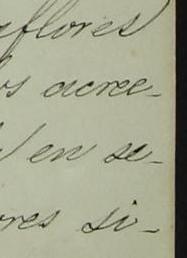 aflores
os acree-
en se-
ores si-